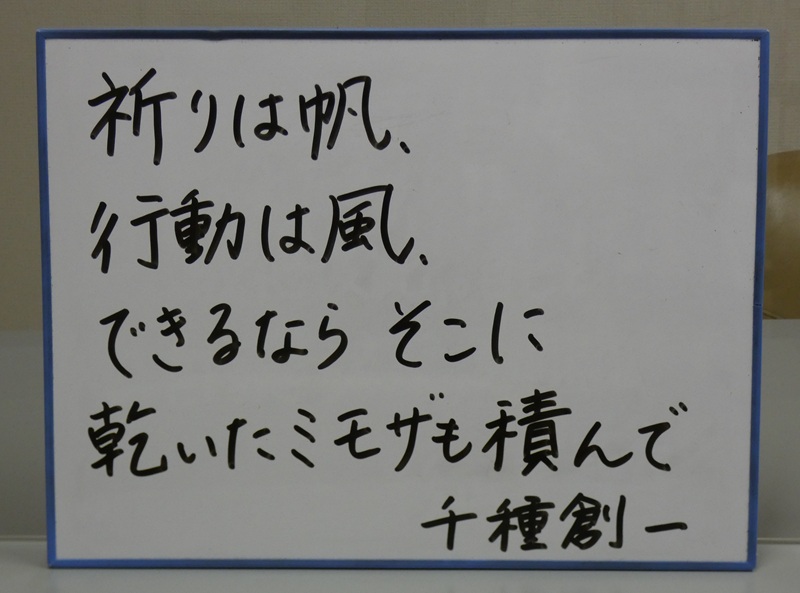 祈りは帆、
行動は風、
できるなら そこに
乾いたミモザも積んで
千種創一